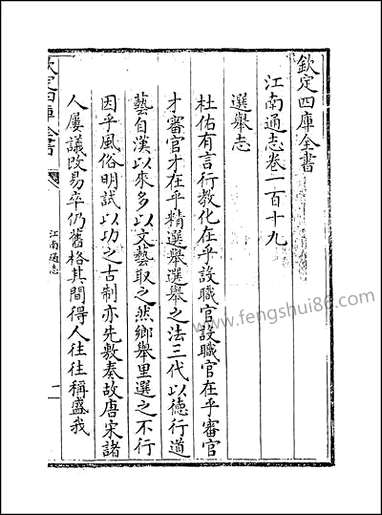 欽定四庫全書
江南通志卷一百十九
選舉志
杜佑有言行教化在乎設職官設職官在乎審官
才審官才在乎精選舉選舉之法三代以德行道
藝自漢以來多以文藝取之然鄉舉里選之不行
因乎風俗明試以功之古制亦先敷奏故唐宋諸
人屢議改易卒仍舊格其間得人往往稱盛我
欽定四庫全書
江南通志
一
www.fengshui86.com